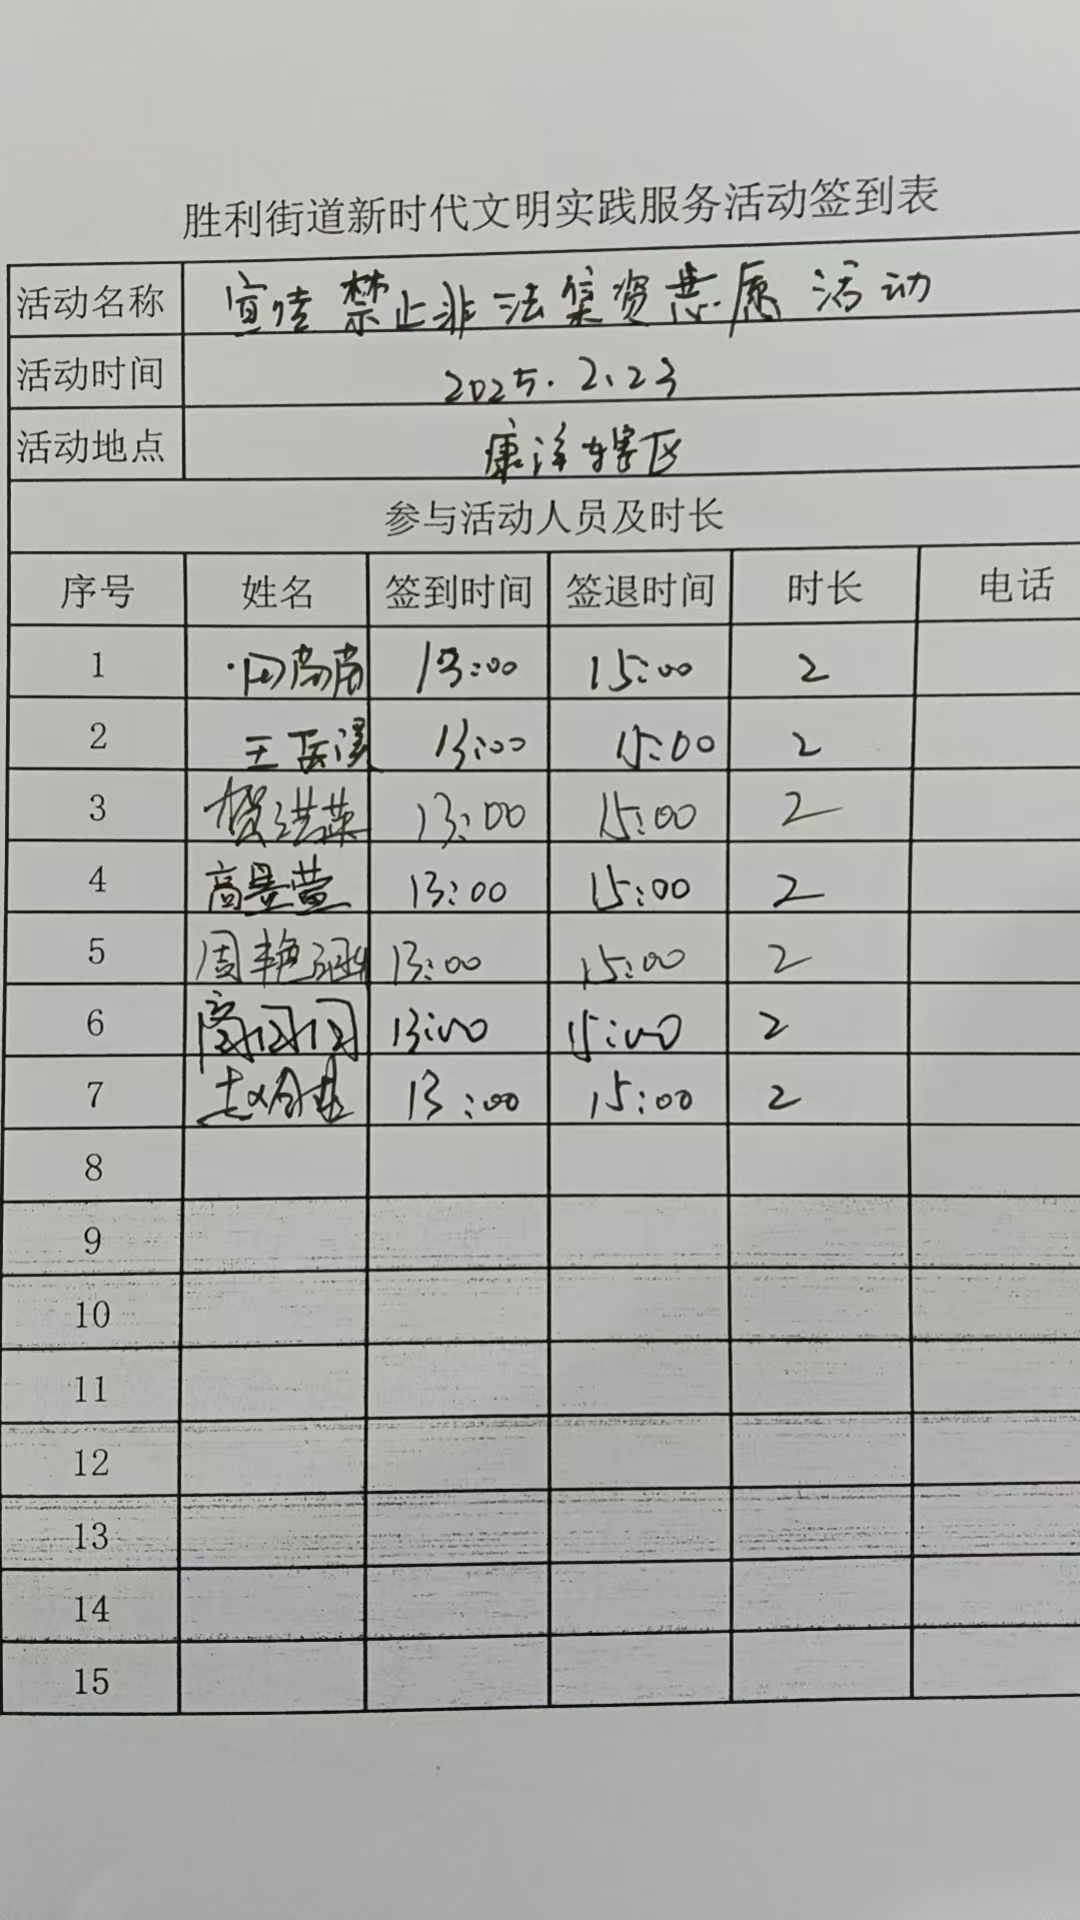 胜利街道新时代文明实践服务活动签到表
活动名称 宣传禁止非法集资志愿活动
活动时间 2025.2.23
活动地点 康泽辖区
参与活动人员及时长
序号 姓名 签到时间 签退时间 时长 电话
1 田尚尚 13:00 15:00 2
2 王岳溪 13:00 15:00 2
3 贺洪英 13:00 15:00 2
4 高墨萱 13:00 15:00 2
5 周艳 13:00 15:00 2
6 13:00 15:00 2
7 13:00 15:00 2
8
9
10
11
12
13
14
15